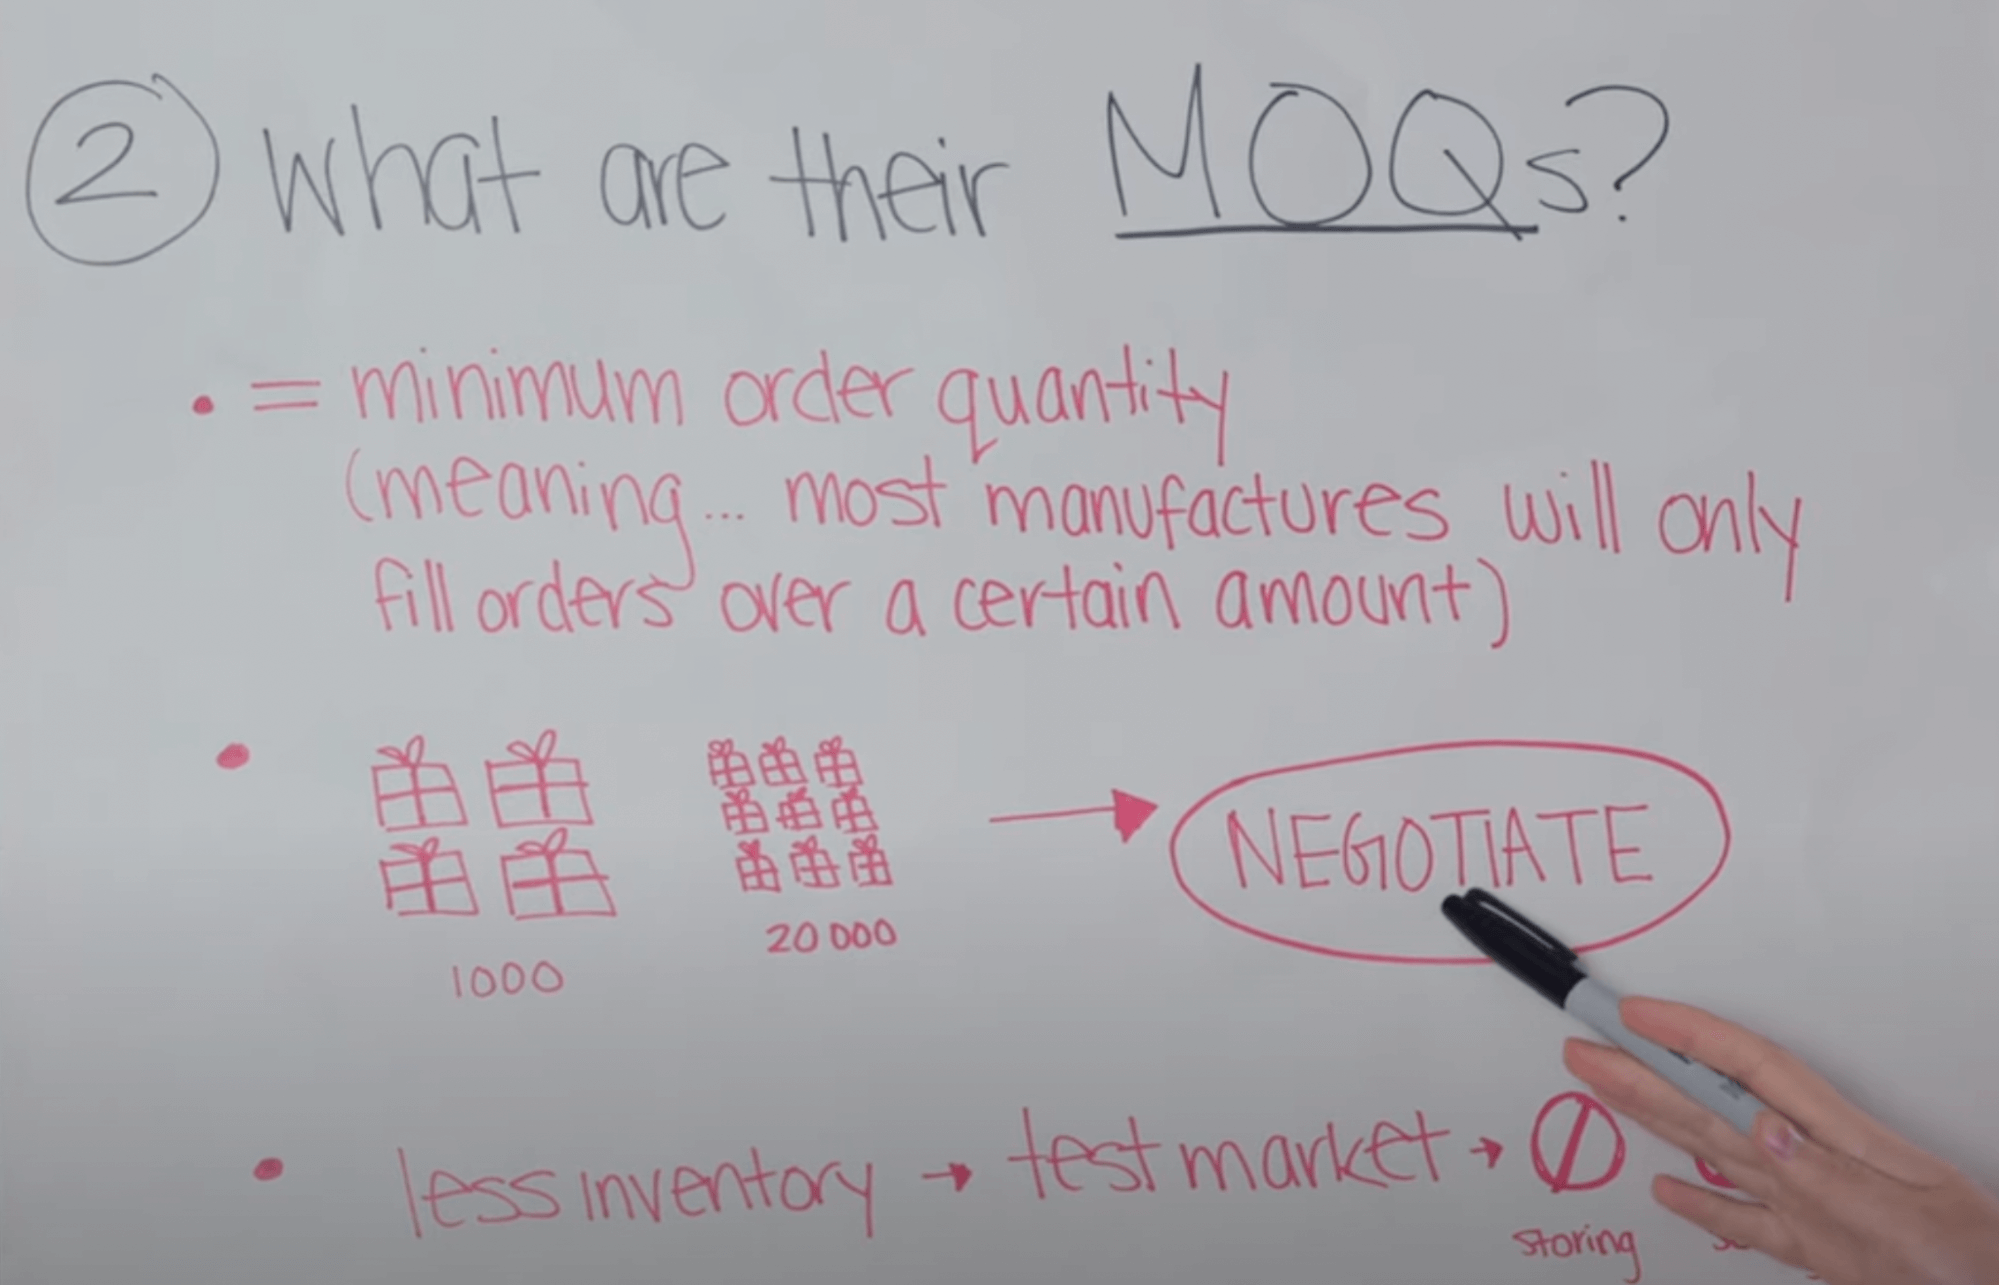 2 What are their MOQs?
• = minimum order quantity
(meaning... most manufactures will only
fill orders over a certain amount)
• → NEGOTIATE
1000 20 000
• less inventory → test market →
storing